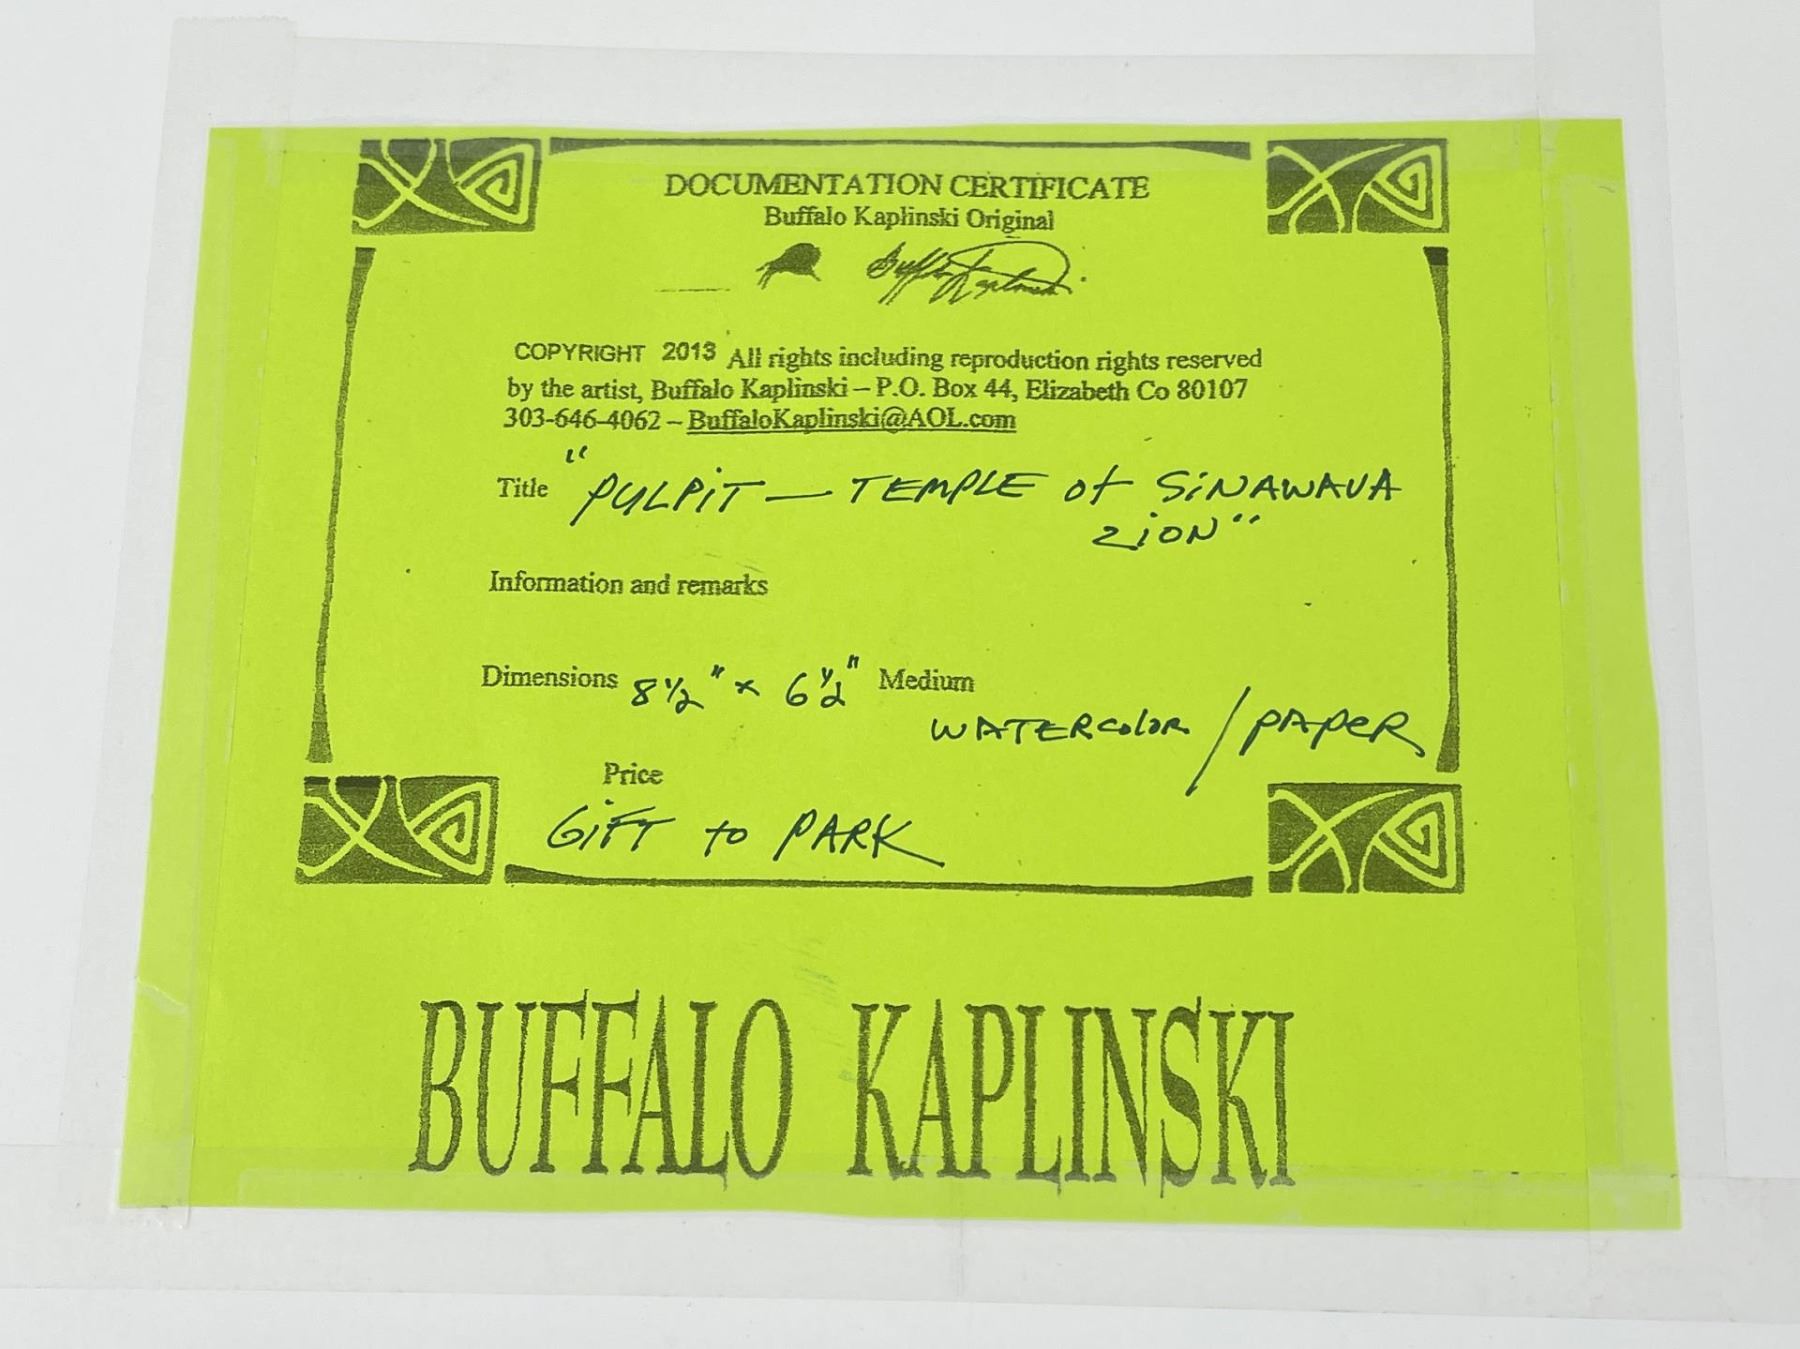 DOCUMENTATION CERTIFICATE
Buffalo Kaplinski Original
Buffalo Kaplinski
COPYRIGHT 2013 All rights including reproduction rights reserved
by the artist, Buffalo Kaplinski – P.O. Box 44, Elizabeth Co 80107
303-646-4062 – BuffaloKaplinski@AOL.com
Title "PULPIT — TEMPLE of SINAWAVA
ZION"
Information and remarks
Dimensions 8 1/2" x 6 1/2" Medium
WATERcoloR / PAPeR
Price
GIFT to PARK
BUFFALO KAPLINSKI